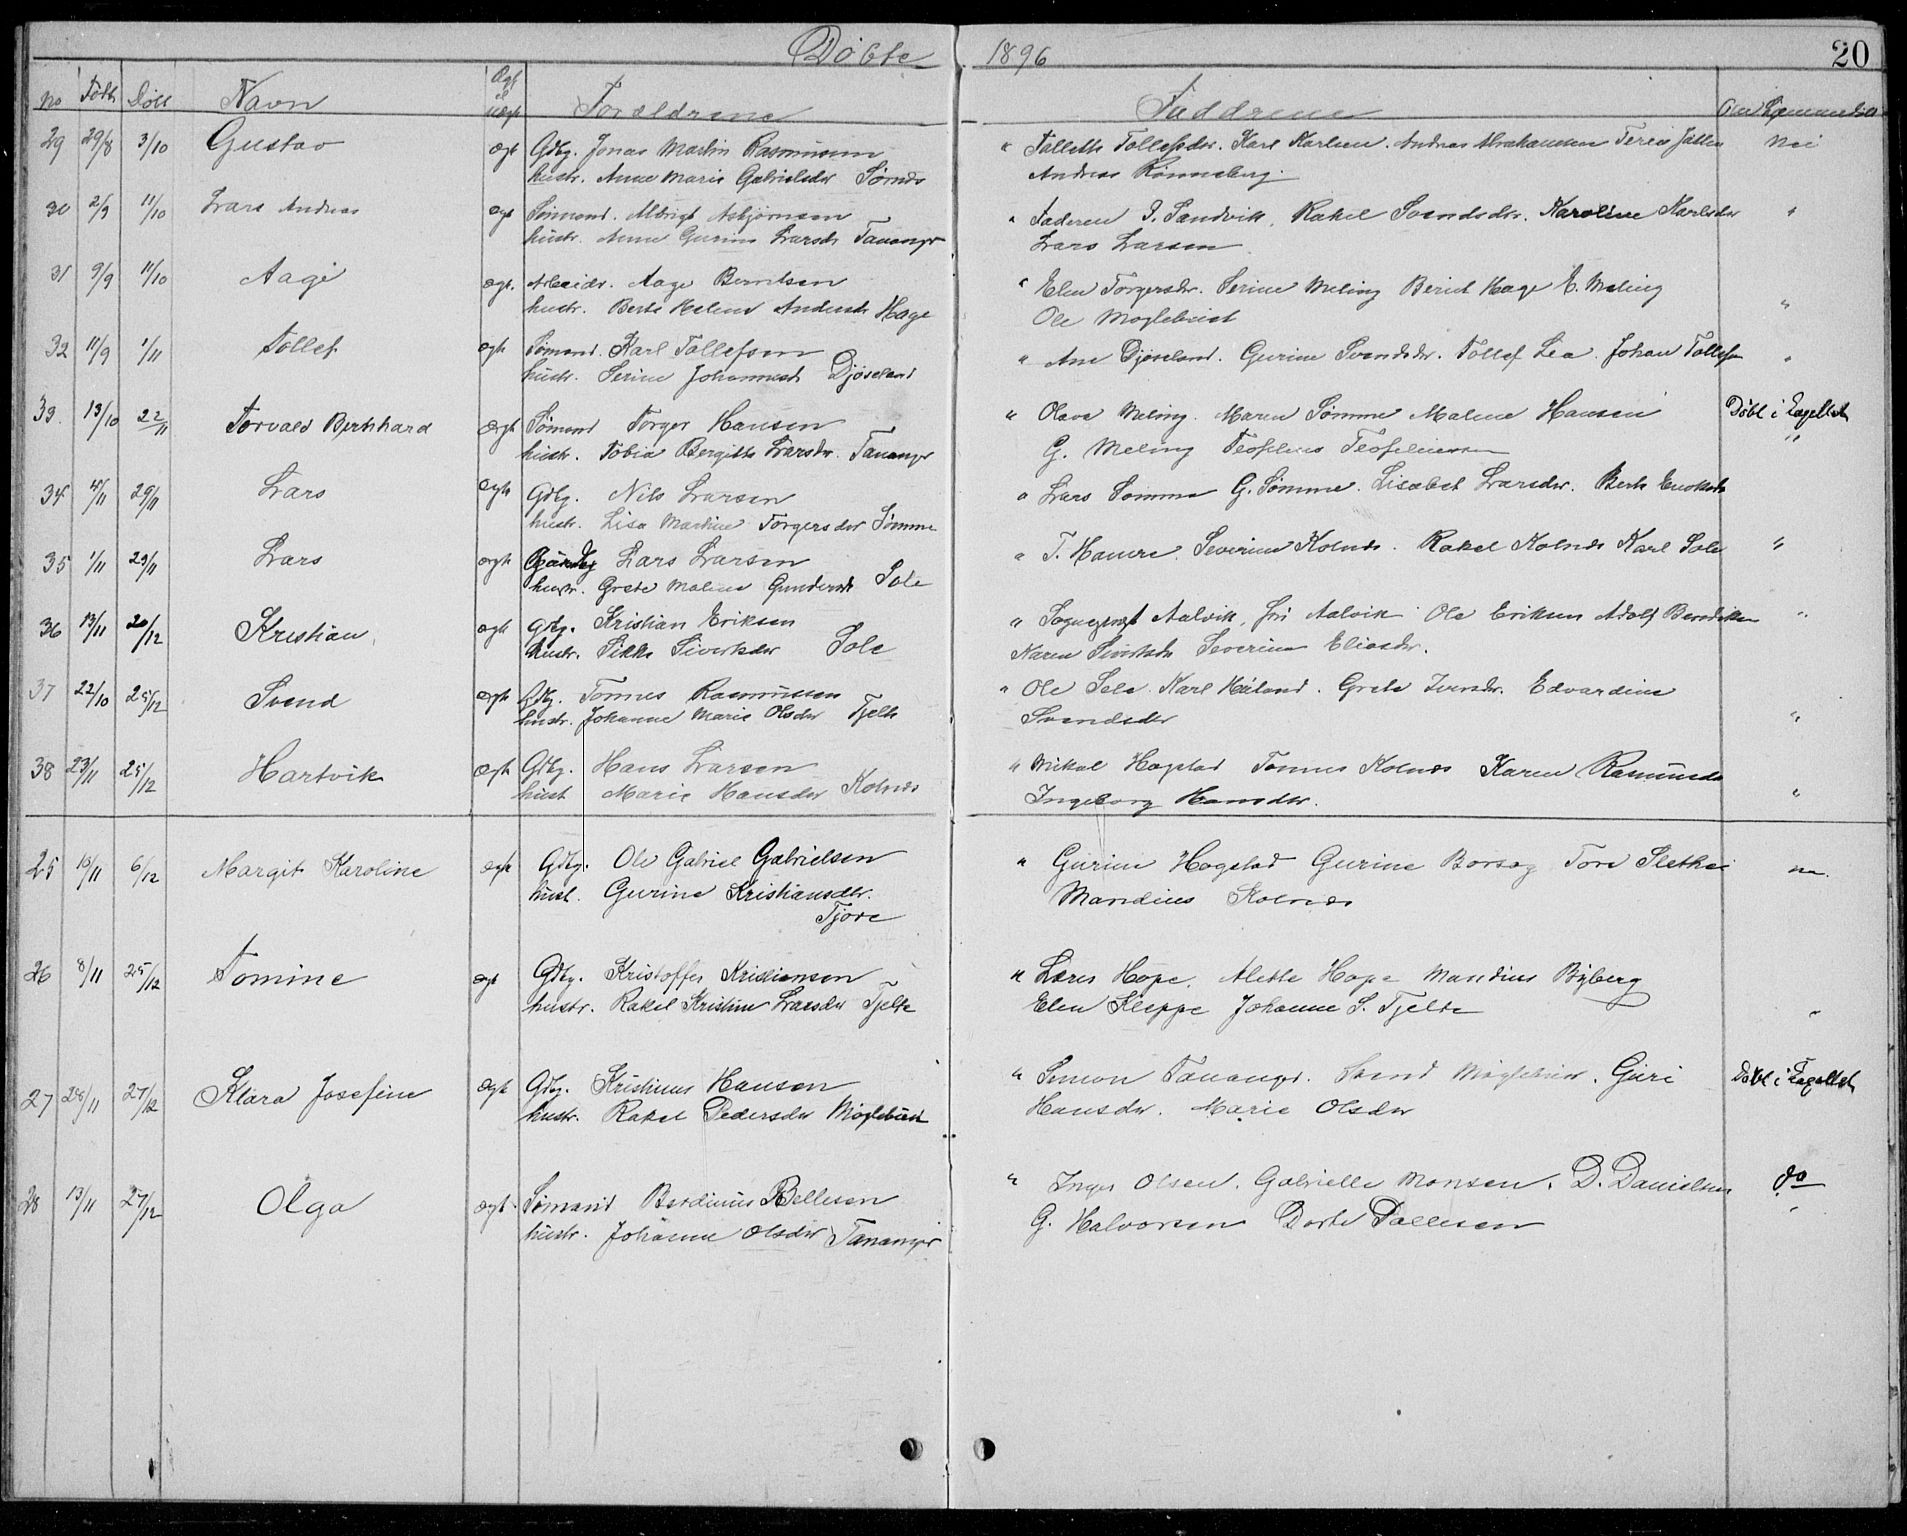 Døbte 1896 20
No Født Døbt Navn Ægt el uægt Forældrene Faddrene
29 29/8 3/10 Gustav ægt Gdbg. Jonas Martin Rasmussen " Talleth Tollefsdr. Karl Karlsen. Andreas Abrahamsen Nei
hustr. Anne Marie Gabrielsdr Sømnes Andreas Rønneberg.
30 2/9 11/10 Lars Andreas ægt Sømand. Albrigt Asbjørnsen " Faderen P. Sandvik, Rakel Svendsdr. Karoline Karlsdr "
hustr. Anne Gurine Larsdr Tananger Lars Larsen
31 9/9 11/10 Aage ægt. Arbeidr. Aage Berntsen " Elen Torgersdr. Serine Meling Berint Hage E. Meling
hustr. Berte Helene Andersdr Hage Ole Moglebust "
32 11/9 1/11 Tollef ægt Sømand. Karl Tollefsen " Ane Djøseland. Gurine Svendsdr. Tollef Lea Johan Tollefsen "
hustr. Serine Johannesdr Djøseland
33. 13/10 22/11 Torvald Bernhard ægt Sømand Torger Hansen " Olava Meling. Maren Sømme Malene Hansen Døbt i Kapellet
hustr. Tobia Bergitte Larsdr. Tananger G. Meling Teofilus Teofiliussen "
34 4/11 29/11 Lars ægt Gdbg. Nils Larsen " Lars Sømme G. Sømme. Lisabet Larsdr. Berte Enoksdr
hustr. Lisa Martine Torgersdr Sømme
35 1/11 29/11 Lars ægt Lars Larsen " T. Haavre Severine Kolnes. Rakel Kolnes Karl Sole "
hustr. Grete Malene Gundersdr Sole
36 13/11 20/12 Kristian ægt Gdbg. Kristian Eriksen " Sogneprest Aalvik, fru Aalvik Ole Eriksen Adolf Berntsen "
hustr. Sikke Sivertsdr Sole Karen Sivertsdr Severine Eliasdr.
37 22/10 25/12 Svend ægt Gdbg. Tønnes Rasmussen " Ole Sele Karl Håland. Grete Iversdr. Edvardine
hustr. Johanne Marie Olsdr Tjelte Svendsdr "
38 23/11 25/12 Hartvik ægt Gdbg. Hans Larsen " Mikal Hogstad Tønnes Kolnes Karen Rasmusdr
hust Marie Hansdr Kolnes Ingeborg Hansdr. "
25 16/11 6/12 Margit Karoline ægt Gdbg. Ole Gabriel Gabrielsen " Gurine Hogstad Gurine Borsag Tore Slethei
hust. Gurine Kristiansdtr. Mandius Kolnes
Tjore
26 8/11 25/12 Tomine ægt Gdbg. Kristoffer Kristiansen " Lars Hope. Alette Hope Mandius Byberg
hustr. Rakel Kristine Larsdr Tjelte Elen Kleppe Johanne S. Tjelte "
27 28/11 27/12 Klara Josefine ægt Gdbg. Kristinus Hansen " Simon Tananger. Svend Moglebust. Guri Døbt i Kapellet
hustr. Rakel Pedersdr Moglebust Hansdr. Marie Olsdr
28 13/11 27/12 Olga ægt. Sømand Berdinus Bellesen " Inger Olsen, Gabrielle Monsen. D. Danielsen do
hustr. Johanne Olsdr Tananger G. Halvorsen Dorte Tallesen "